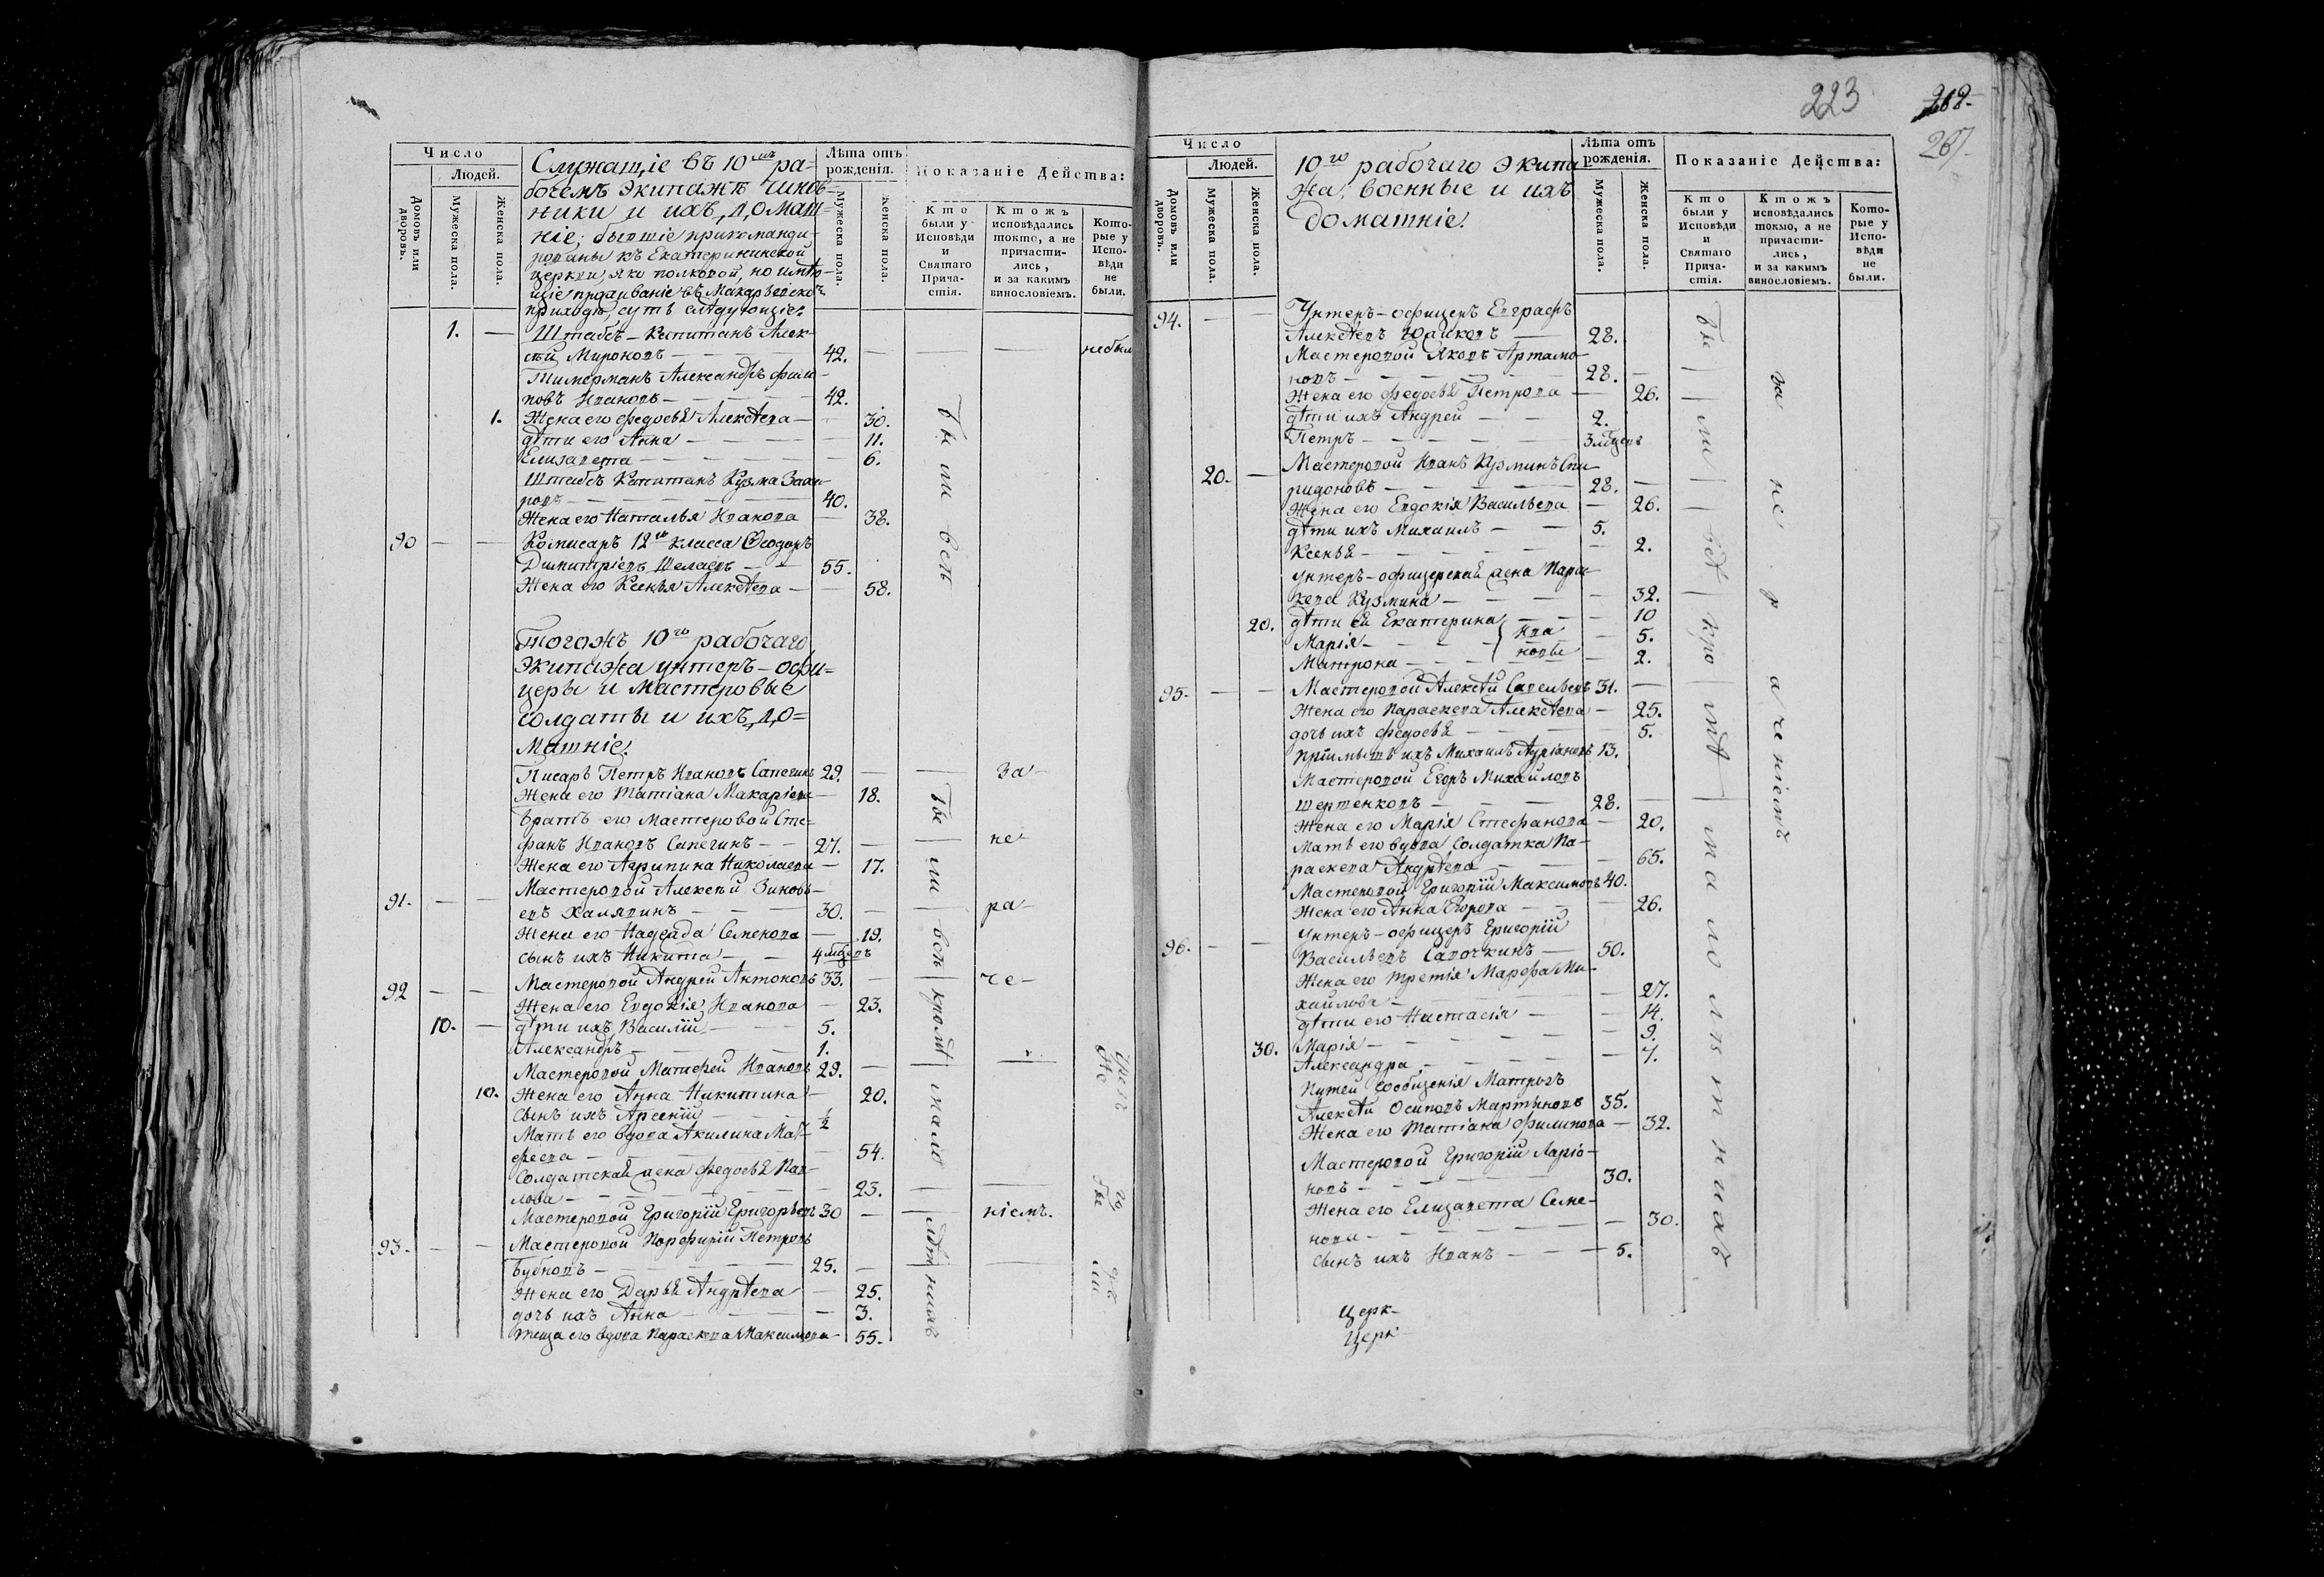 Число
Людей.
Домовъ или дворовъ.
Мужеска пола.
Женска пола.
Служащіе въ 10мъ ра=
бочемъ экипажѣ чинов=
ники и ихъ до маш=
ніе; бывшіе прикоманди-
рованы къ Екатерининской
церкви, яко полковой, но имѣю-
щіе
приходѣ, суть слѣдующіе:
Лѣта отъ рожденія.
Мужеска пола.
Женска пола.
Показаніе Действа:
Кто были у Исповѣди и Святаго Прича-стія.
Ктожъ исповѣдались токмо, а не причасти-лись, и за какимъ винословіемъ.
Кото-рые у Испо-вѣди не были.
1. — Штабсъ-Капитанъ Алек-
сѣй Мироновъ — 42. — — — небыл
Тимерманъ Александръ Фили-
повъ Ивановъ — 42.
1. Жена его Федосья Алексѣева — 30.
дѣти его Анна — 11.
Елизавета — 6.
Штабсъ Капитанъ Кузма Заха-
ровъ — 40.
Жена его Наталья Иванова — 38.
90 — — Комисаръ 12го класса Ѳеодоръ
Димитріевъ Шелаевъ — 55.
Жена его Ксенья Алексѣева — 58.
Тогожъ 10го рабочаго
экипажа унтеръ-офи=
церы и мастеровые
солдаты и ихъ до=
машніе.
Писарь Петръ Ивановъ Сапегинъ 29. — — за-
Жена его Татіана Макаріева — 18.
Братъ его Мастеровой Сте=
фанъ Ивановъ Сапегинъ — 27. — — не
Жена его Агрипина Николаева — 17.
Мастеровой Алексѣй Зиновь-
91. — — евъ Халявинъ — 30. — — ра-
Жена его Надежда Семенова — 19.
сынъ ихъ Никита — 4 мѣсецъ
92 — — Мастеровой Андрей Антоновъ 33. — че-
Жена его Евдокія Иванова — 23.
10. — дѣти ихъ Василій — 5.
Александръ — 1.
Мастеровой Матфей Ивановъ 29. —
10. Жена его Анна Никитина — 20.
сынъ ихъ Арсеній — ½
Мать его вдова Акилина Мат-
феева — 54.
Солдатская жена Федосья Пав-
лова — 23.
Мастеровой Григорій Григорьевъ 30 — — ніемъ.
93. — — Мастеровой Порфирій Петровъ
Бубновъ — 25. —
Жена его Дарья Андрѣева — 25.
дочь ихъ Анна — 3.
теща его вдова Параскева Максимова — 55.
Бы ли всѣ
Бы | ли | всѣ | кромѣ | мало | лѣт нихъ
223
267.
Число
Людей.
Домовъ или дворовъ.
Мужеска пола.
Женска пола.
10го рабочаго экипа
жа, военные и ихъ
домашніе.
Лѣта отъ рожденія.
Мужеска пола.
Женска пола.
Показаніе Действа:
Кто были у Исповѣди и Святаго Прича-стія.
Ктожъ исповѣдались токмо, а не причасти-лись, и за какимъ винословіемъ.
Кото-рые у Испо-вѣди не были.
94. — — Унтеръ-офицеръ Евграфъ
Алексѣевъ — 28.
Мастеровой Яковъ Артамо-
новъ — 28. —
Жена его Федосья Петрова — 26.
дѣти ихъ Андрей — 2.
Петръ — 3 мѣсецъ
Мастеровой Иванъ Кузминъ Спи-
20. — ридоновъ — 28. —
Жена его Евдокія Васильева — 26.
дѣти ихъ Михаилъ — 5.
Ксенья — 2.
Унтеръ-офицерская жена Парас-
кева Кузмина — 32.
20. дѣти ея Екатерина — 10
Марія — } Ива — 5.
Матрона — новы — 2.
95. — — Мастеровой Алексѣй Савельевъ 31. —
Жена его Параскева Алексѣева — 25.
дочь ихъ Федосья — 5.
пріимышъ ихъ Михаилъ Адріановъ 13.
Мастеровой Егоръ Михайловъ
Шертенковъ — 28. —
Жена его Марія Стефанова — 20.
Мать его вдова Солдатка Па-
раскева Андрѣева — 65.
Мастеровой Григорій Максимовъ 40.
Жена его Анна Егорова — 26.
Унтеръ-офицеръ Григорій
96. — — Васильевъ Сапочкинъ — 50.
Жена его третія Марфа Ми-
хайлова — 27.
дѣти его Настасія — 14.
30. Марія — 9.
Александра — 7.
Путей сообщенія Матрозъ
Алексѣй Осиповъ Мартыновъ 35.
Жена его Татіана Филипова — 32.
Мастеровой Григорій Ларіо-
новъ — 30.
Жена его Елизавета Семе-
нова — 30.
сынъ ихъ Иванъ — 5.
Бы | ли | всѣ | кро | мѣ | ма ло лѣ т н ихъ
за не р а ченіемъ
Церк-
Церк